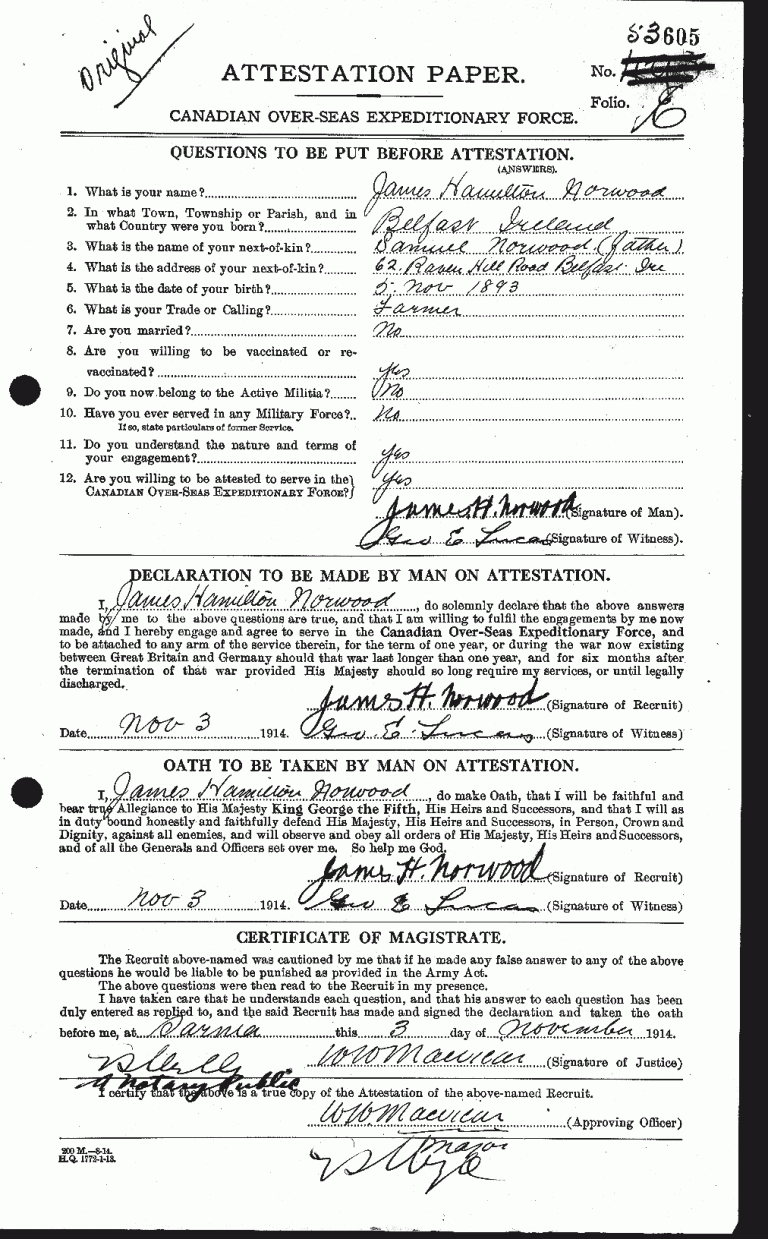 Original
53605
ATTESTATION PAPER.
No.
Folio. E
CANADIAN OVER-SEAS EXPEDITIONARY FORCE.
QUESTIONS TO BE PUT BEFORE ATTESTATION.
(ANSWERS).
1. What is your name? James Hamilton Norwood
2. In what Town, Township or Parish, and in
what Country were you born? Belfast Ireland
3. What is the name of your next-of-kin? Samuel Norwood (father)
4. What is the address of your next-of-kin? 62. Raven Hill Road Belfast Ire
5. What is the date of your birth? 5. Nov 1893
6. What is your Trade or Calling? Farmer
7. Are you married? No
8. Are you willing to be vaccinated or re-
vaccinated? yes
9. Do you now belong to the Active Militia? No
10. Have you ever served in any Military Force? No
If so, state particulars of former Service.
11. Do you understand the nature and terms of
your engagement? yes
12. Are you willing to be attested to serve in the yes
CANADIAN OVER-SEAS EXPEDITIONARY FORCE?
James H. Norwood (Signature of Man).
Geo E. Lucas (Signature of Witness).
DECLARATION TO BE MADE BY MAN ON ATTESTATION.
I, James Hamilton Norwood, do solemnly declare that the above answers
made by me to the above questions are true, and that I am willing to fulfil the engagements by me now
made, and I hereby engage and agree to serve in the Canadian Over-Seas Expeditionary Force, and
to be attached to any arm of the service therein, for the term of one year, or during the war now existing
between Great Britain and Germany should that war last longer than one year, and for six months after
the termination of that war provided His Majesty should so long require my services, or until legally
discharged.
James H. Norwood (Signature of Recruit)
Date Nov 3 1914. Geo E. Lucas (Signature of Witness)
OATH TO BE TAKEN BY MAN ON ATTESTATION.
I, James Hamilton Norwood, do make Oath, that I will be faithful and
bear true Allegiance to His Majesty King George the Fifth, His Heirs and Successors, and that I will as
in duty bound honestly and faithfully defend His Majesty, His Heirs and Successors, in Person, Crown and
Dignity, against all enemies, and will observe and obey all orders of His Majesty, His Heirs and Successors,
and of all the Generals and Officers set over me. So help me God.
James H. Norwood (Signature of Recruit)
Date Nov 3 1914. Geo E Lucas (Signature of Witness)
CERTIFICATE OF MAGISTRATE.
The Recruit above-named was cautioned by me that if he made any false answer to any of the above
questions he would be liable to be punished as provided in the Army Act.
The above questions were then read to the Recruit in my presence.
I have taken care that he understands each question, and that his answer to each question has been
duly entered as replied to, and the said Recruit has made and signed the declaration and taken the oath
before me, at Sarnia this 3 day of November 1914.
(Signature of Justice)
A Notary Public
I certify that the above is a true copy of the Attestation of the above-named Recruit.
(Approving Officer)
Major
200 M.—8-14.
H.Q. 1772-1-13.